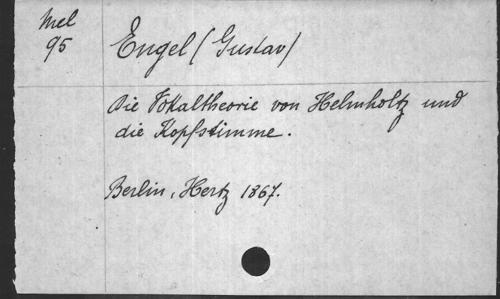 Mel
95
Engel (Gustav)
Die Vokaltheorie von Helmholtz und
die Kopfstimme.
Berlin, Hertz 1867.